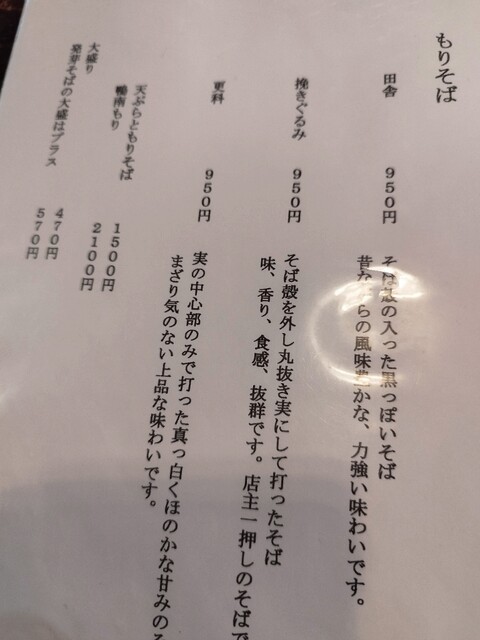 もりそば
田舎 950円
そば殻の入った黒っぽいそば
昔ながらの風味豊かな、力強い味わいです。
挽きぐるみ 950円
そば殻を外し丸抜き実にして打ったそば
味、香り、食感、抜群です。店主一押しのそばで
更科 950円
実の中心部のみで打った真っ白くほのかな甘みの
まざり気のない上品な味わいです。
天ぷらともりそば 1500円
鴨南もり 2100円
大盛り 470円
発芽そばの大盛はプラス 570円